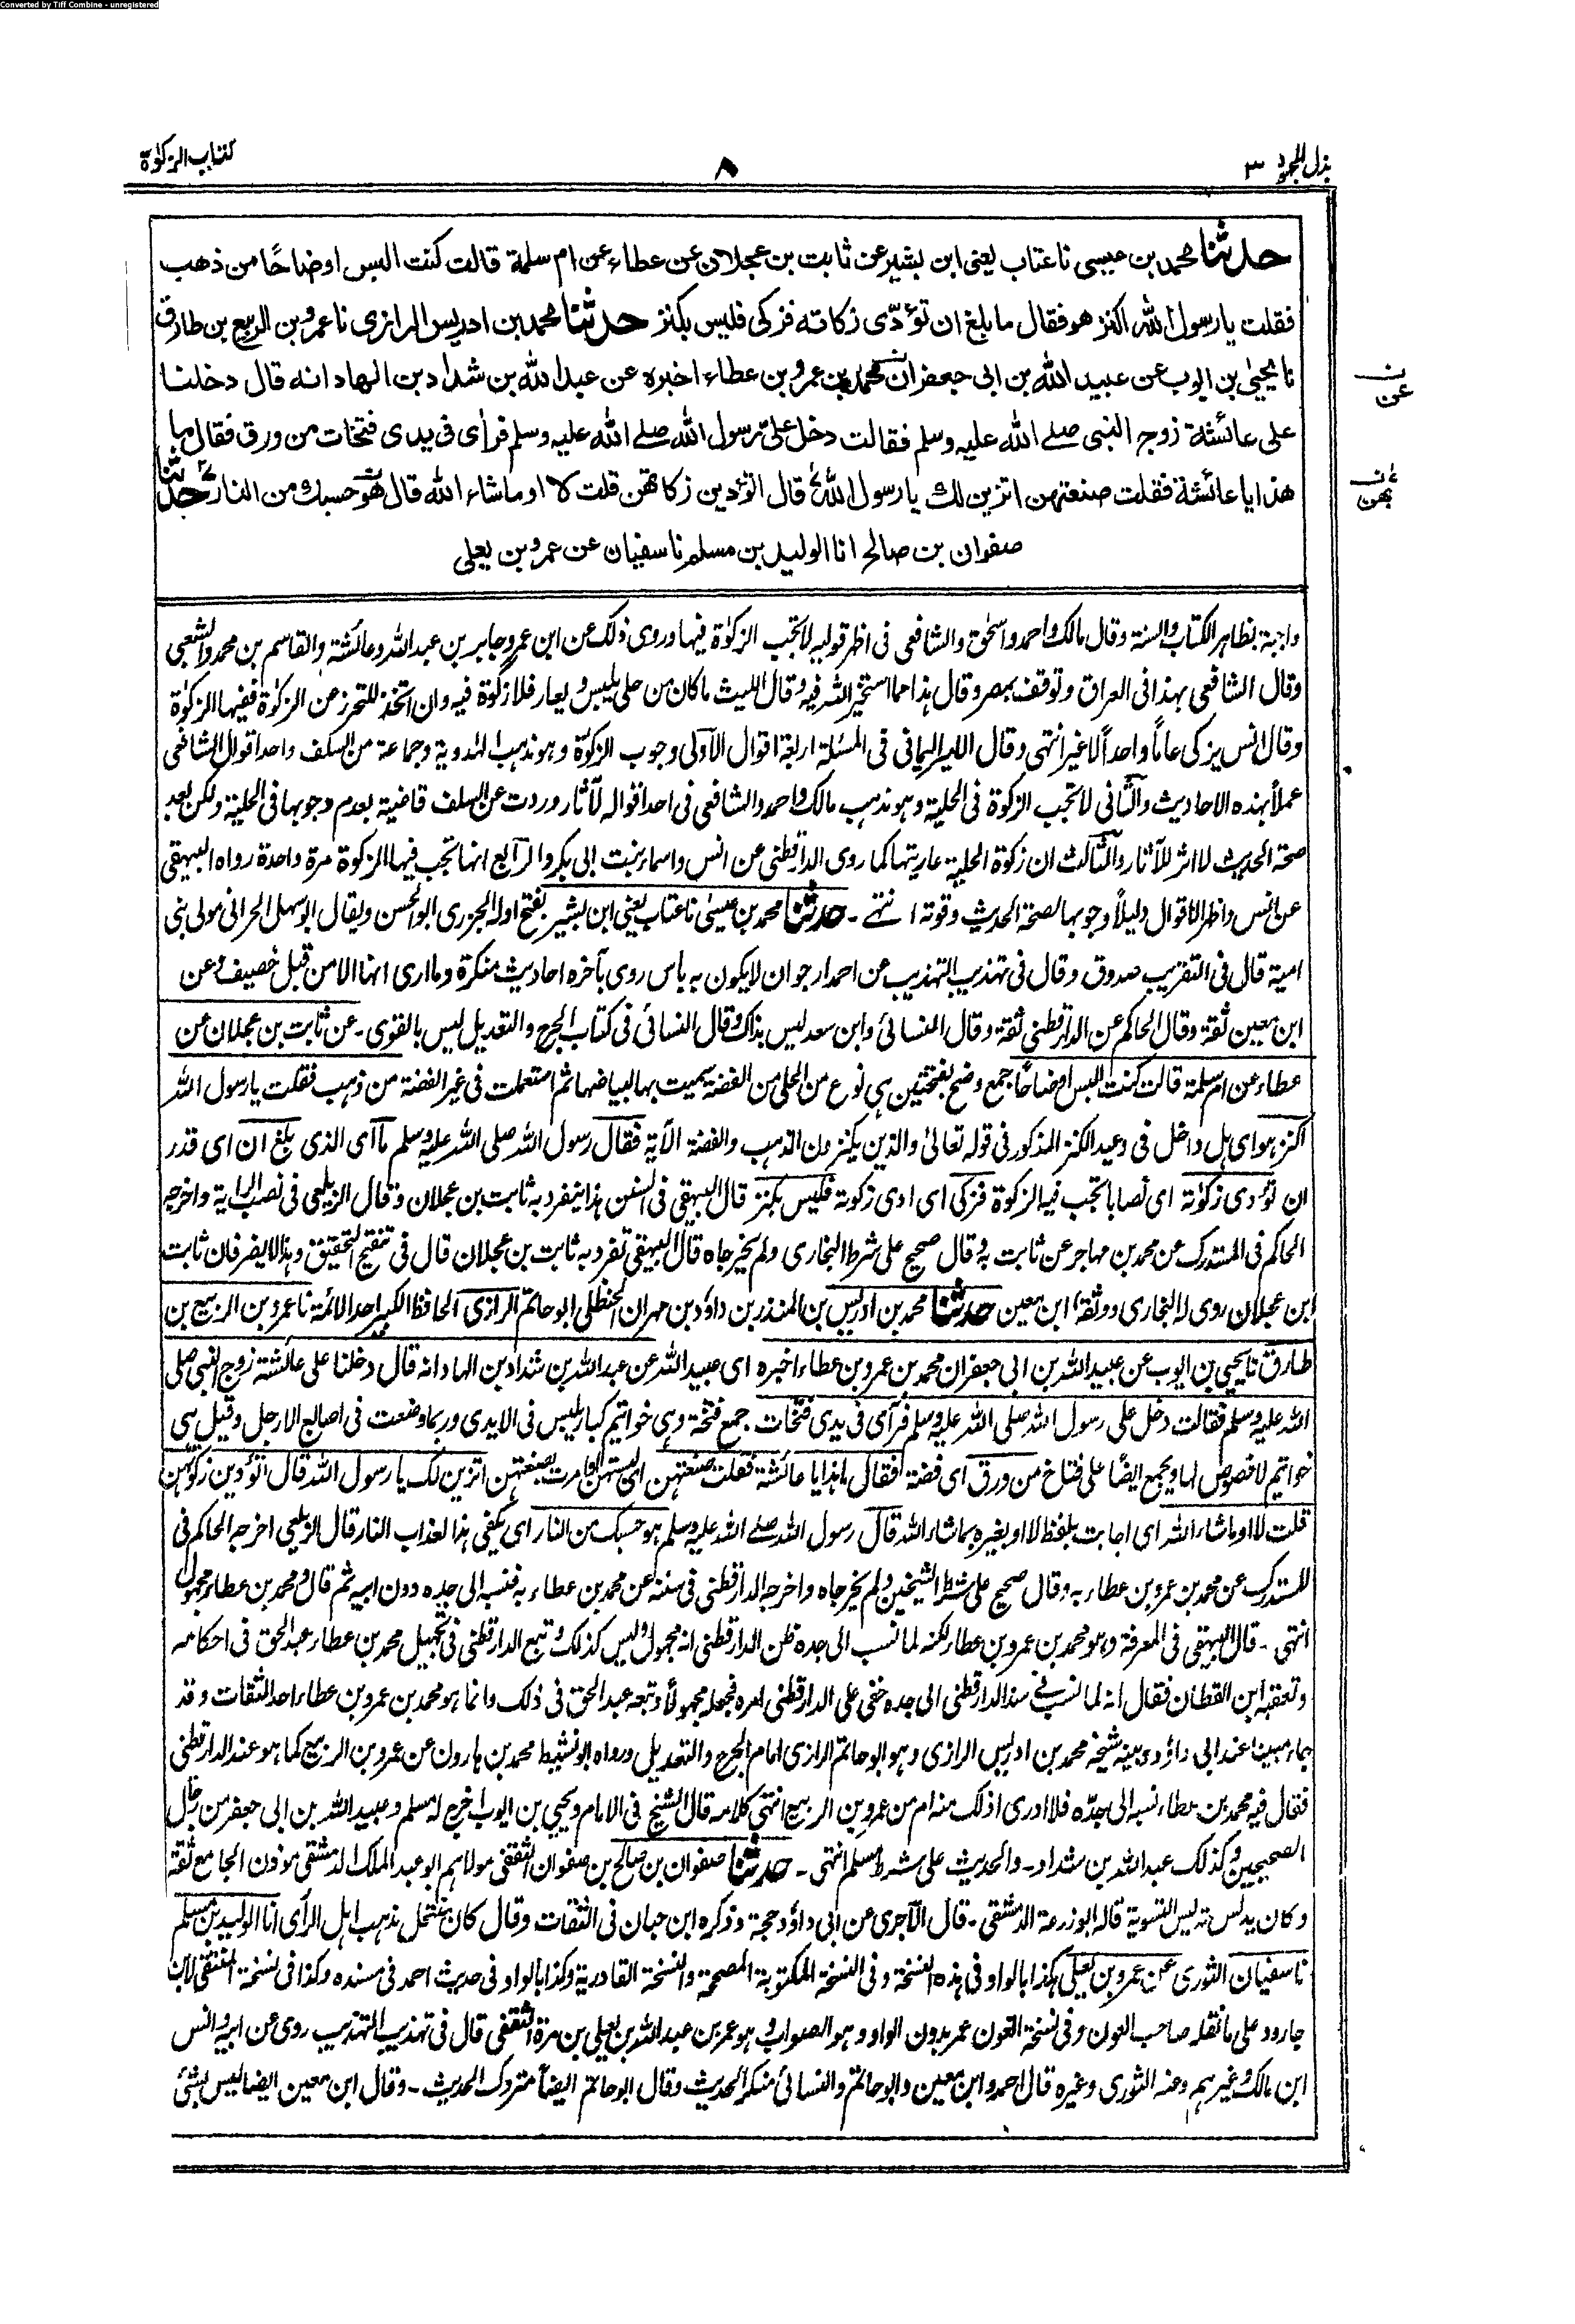 Converted by Tiff Combine - unregistered
بذل المجہود ۳
۸
کتاب الزکوٰۃ
حدثنا محمد بن عیسی نا عتاب یعنی ابن بشیر عن ثابت بن عجلان عن عطاء عن ام سلمة قالت کنت البس اوضاحًا من ذهب
فقلت یا رسول اللہ اکنز هو فقال ما بلغ ان تؤدّی زکاته فزکی فلیس بکنز حدثنا محمد بن ادریس الرازی نا عمرو بن الربیع بن طارق
نا یحییٰ بن ایوب عن عبید اللہ بن ابی جعفر ان محمد بن عمرو بن عطاء اخبره عن عبد اللہ بن شداد بن الهاد انه قال دخلنا
علی عائشة زوج النبی صلے اللہ علیہ وسلم فقالت دخل علیّ رسول اللہ صلے اللہ علیہ وسلم فرأی فی یدی فتخات من ورق فقال ما
هذا یا عائشة فقلت صنعتهن اتزین لك یا رسول اللہ قال اتؤدین زکاتهن قلت لا او ما شاء اللہ قال هو حسبك من النار حدثنا
صفوان بن صالح انا الولید بن مسلم نا سفیان عن عمرو بن یعلی
ن
عن
بهن
واجبة بظاہر الکتاب والسنة وقال مالک واحمد واسحٰق والشافعی فی اظہر قولیہ لا تجب الزکوٰۃ فیہا وروی ذلک عن ابن عمر وجابر بن عبد اللہ وعائشة والقاسم بن محمد والشعبی
وقال الشافعی بہذا فی العراق وتوقف بمصر وقال ہذا مما استخیر اللہ فیہ وقال اللیث ما کان من حلی یلبس ویعار فلا زکوٰۃ فیہ وان اتخذ للتحرز عن الزکوٰۃ ففیہا الزکوٰۃ
وقال انس یزکی عامًا واحدًا لا غیر انتہی وقال الیمانی فی المسئلة اربعة اقوال الاولی وجوب الزکوٰۃ وہو مذہب الہدویة وجماعة من السلف واحد اقوال الشافعی
عملًا بہذہ الاحادیث والثانی لا تجب الزکوٰۃ فی الحلیة وہو مذہب مالک واحمد والشافعی فی احد اقوالہ لآثار وردت عن السلف قاضیة بعدم وجوبہا فی الحلیة ولکن بعد
صحة الحدیث لا اثر للآثار والثالث ان زکوٰۃ الحلیة عاریتہا کما روی الدارقطنی عن انس واسماء بنت ابی بکر والرابع انہا تجب فیہا الزکوٰۃ مرة واحدة رواہ البیہقی
عن انس واظہر الاقوال دلیلًا وجوبہا لصحة الحدیث وقوتہ انتہے ۔ حدثنا محمد بن عیسیٰ نا عتاب یعنی ابن بشیر بفتح اولہ الجزری ابو الحسن ویقال ابو سہل الحرانی مولی بنی
امیة قال فی التقریب صدوق وقال فی تہذیب التہذیب عن احمد ارجو ان لا یکون بہ باس روی بآخرہ احادیث منکرة وما اری انہا الا من قبل خصیف وعن
ابن معین ثقة وقال الحاکم عن الدارقطنی ثقة وقال النسائی وابن سعد لیس بذاک وقال النسائی فی کتاب الجرح والتعدیل لیس بالقوی ۔ عن ثابت بن عجلان عن
عطاء عن ام سلمة قالت کنت البس اوضاحًا جمع وضح بفتحتین ہی نوع من الحلی من الفضة سمیت بہا لبیاضہا ثم استعملت فی غیر الفضة من ذہب فقلت یا رسول اللہ
اکنز ہو ای ہل داخل فی وعید الکنز المذکور فی قولہ تعالیٰ والذین یکنزون الذہب والفضة الآیة فقال رسول اللہ صلی اللہ علیہ وسلم ما ای الذی بلغ ان ای قدر
ان تؤدی زکوٰتہ ای نصابا تجب فیہ الزکوٰۃ فزکی ای ادی زکوتہ فلیس بکنز قال البیہقی فی السنن ہذا ینفرد بہ ثابت بن عجلان وقال الزیلعی فی نصب الرایة واخرجہ
الحاکم فی المستدرک عن محمد بن مہاجر عن ثابت بہ وقال صحیح علی شرط البخاری ولم یخرجاہ قال البیہقی تفرد بہ ثابت بن عجلان قال فی تنقیح التحقیق وہذا لا یضر فان ثابت
ابن عجلان روی لہ البخاری ووثقہ ابن معین حدثنا محمد بن ادریس بن المنذر بن داؤد بن مہران الحنظلی ابو حاتم الرازی الحافظ الکبیر احد الائمة نا عمرو بن الربیع بن
طارق نا یحیی بن ایوب عن عبید اللہ بن ابی جعفر ان محمد بن عمرو بن عطاء اخبرہ ای عبید اللہ عن عبد اللہ بن شداد بن الہاد انہ قال دخلنا علی عائشة زوج النبی صلی
اللہ علیہ وسلم فقالت دخل علی رسول اللہ صلی اللہ علیہ وسلم فرآی فی یدی فتخات جمع فتخة وہی خواتیم کبار یلبس فی الایدی وربما وضعت فی اصابع الارجل وقیل ہی
خواتیم لا فصوص لہا ویجمع ایضًا علی فتاخ من ورق ای فضة فقال ما ہذا یا عائشة فقلت صنعتہن اتزین لک یا رسول اللہ قال اتؤدین زکوٰتہن
قلت لا او ما شاء اللہ ای اجابت بلفظ لا او بغیرہ بما شاء اللہ قال رسول اللہ صلے اللہ علیہ وسلم ہو حسبک من النار ای یکفی ہذا لعذاب النار قال الزیلعی اخرجہ الحاکم فی
المستدرک عن محمد بن عمرو بن عطاء بہ وقال صحیح علی شرط الشیخین ولم یخرجاہ واخرجہ الدارقطنی فی سننہ عن محمد بن عطاء بہ فنسبہ الی جدہ دون ابیہ ثم قال ومحمد بن عطاء مجہول
انتہی ۔ قال البیہقی فی المعرفة وہو محمد بن عمرو بن عطاء لکنہ لما نسب الی جدہ ظن الدارقطنی انہ مجہول ولیس کذلک وتبع الدارقطنی فی تجہیل محمد بن عطاء عبد الحق فی احکامہ
وتعقبہ ابن القطان فقال انہ لما نسب فی سند الدارقطنی الی جدہ خفی علی الدارقطنی امرہ فجعلہ مجہولًا وتبعہ عبد الحق فی ذلک وانما ہو محمد بن عمرو بن عطاء احد الثقات وقد
جاء مبینا عند ابی داؤد وبینہ شیخہ محمد بن ادریس الرازی وہو ابو حاتم الرازی امام الجرح والتعدیل ورواہ ابو نشیط محمد بن ہارون عن عمرو بن الربیع کما ہو عند الدارقطنی
فقال فیہ محمد بن عطاء نسبہ الی جدّہ فلا ادری اذلک منہ ام من عمرو بن الربیع انتہی کلامہ قال الشیخ فی الامام ویحیی بن ایوب اخرج لہ مسلم وعبید اللہ بن ابی جعفر من رجال
الصحیحین وکذلک عبد اللہ بن شداد ۔ والحدیث علی شرط مسلم انتہی ۔ حدثنا صفوان بن صالح بن صفوان الثقفی مولاہم ابو عبد الملک الدمشقی مؤذن الجامع ثقة
وکان یدلس تدلیس التسویة قالہ ابو زرعة الدمشقی ۔ قال الآجری عن ابی داؤد حجة وذکرہ ابن حبان فی الثقات وقال کان ینتحل مذہب اہل الرأی انا الولید بن مسلم
نا سفیان الثوری عن عمرو بن یعلی ہکذا بالواو فی ہذہ النسخة وفی النسخة المکتوبة المصححة والنسخة القادریة وکذا بالواو فی حدیث احمد فی مسندہ وکذا فی نسخة المنتقی لابن
جارود علی ما نقلہ صاحب العون وفی نسخة العون عمر بدون الواو وہو الصواب وہو عمر بن عبد اللہ بن یعلی بن مرة الثقفی قال فی تہذیب التہذیب روی عن ابیہ وانس
ابن مالک وغیرہم وعنہ الثوری وغیرہ قال احمد وابن معین وابو حاتم والنسائی منکر الحدیث وقال ابو حاتم ایضًا متروک الحدیث ۔ وقال ابن معین ایضا لیس بشئ